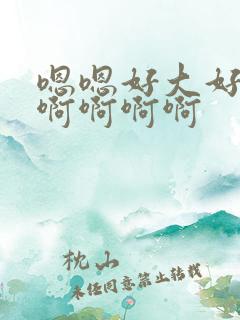 嗯嗯好大好
啊啊啊啊
枕山
未经同意禁止转载